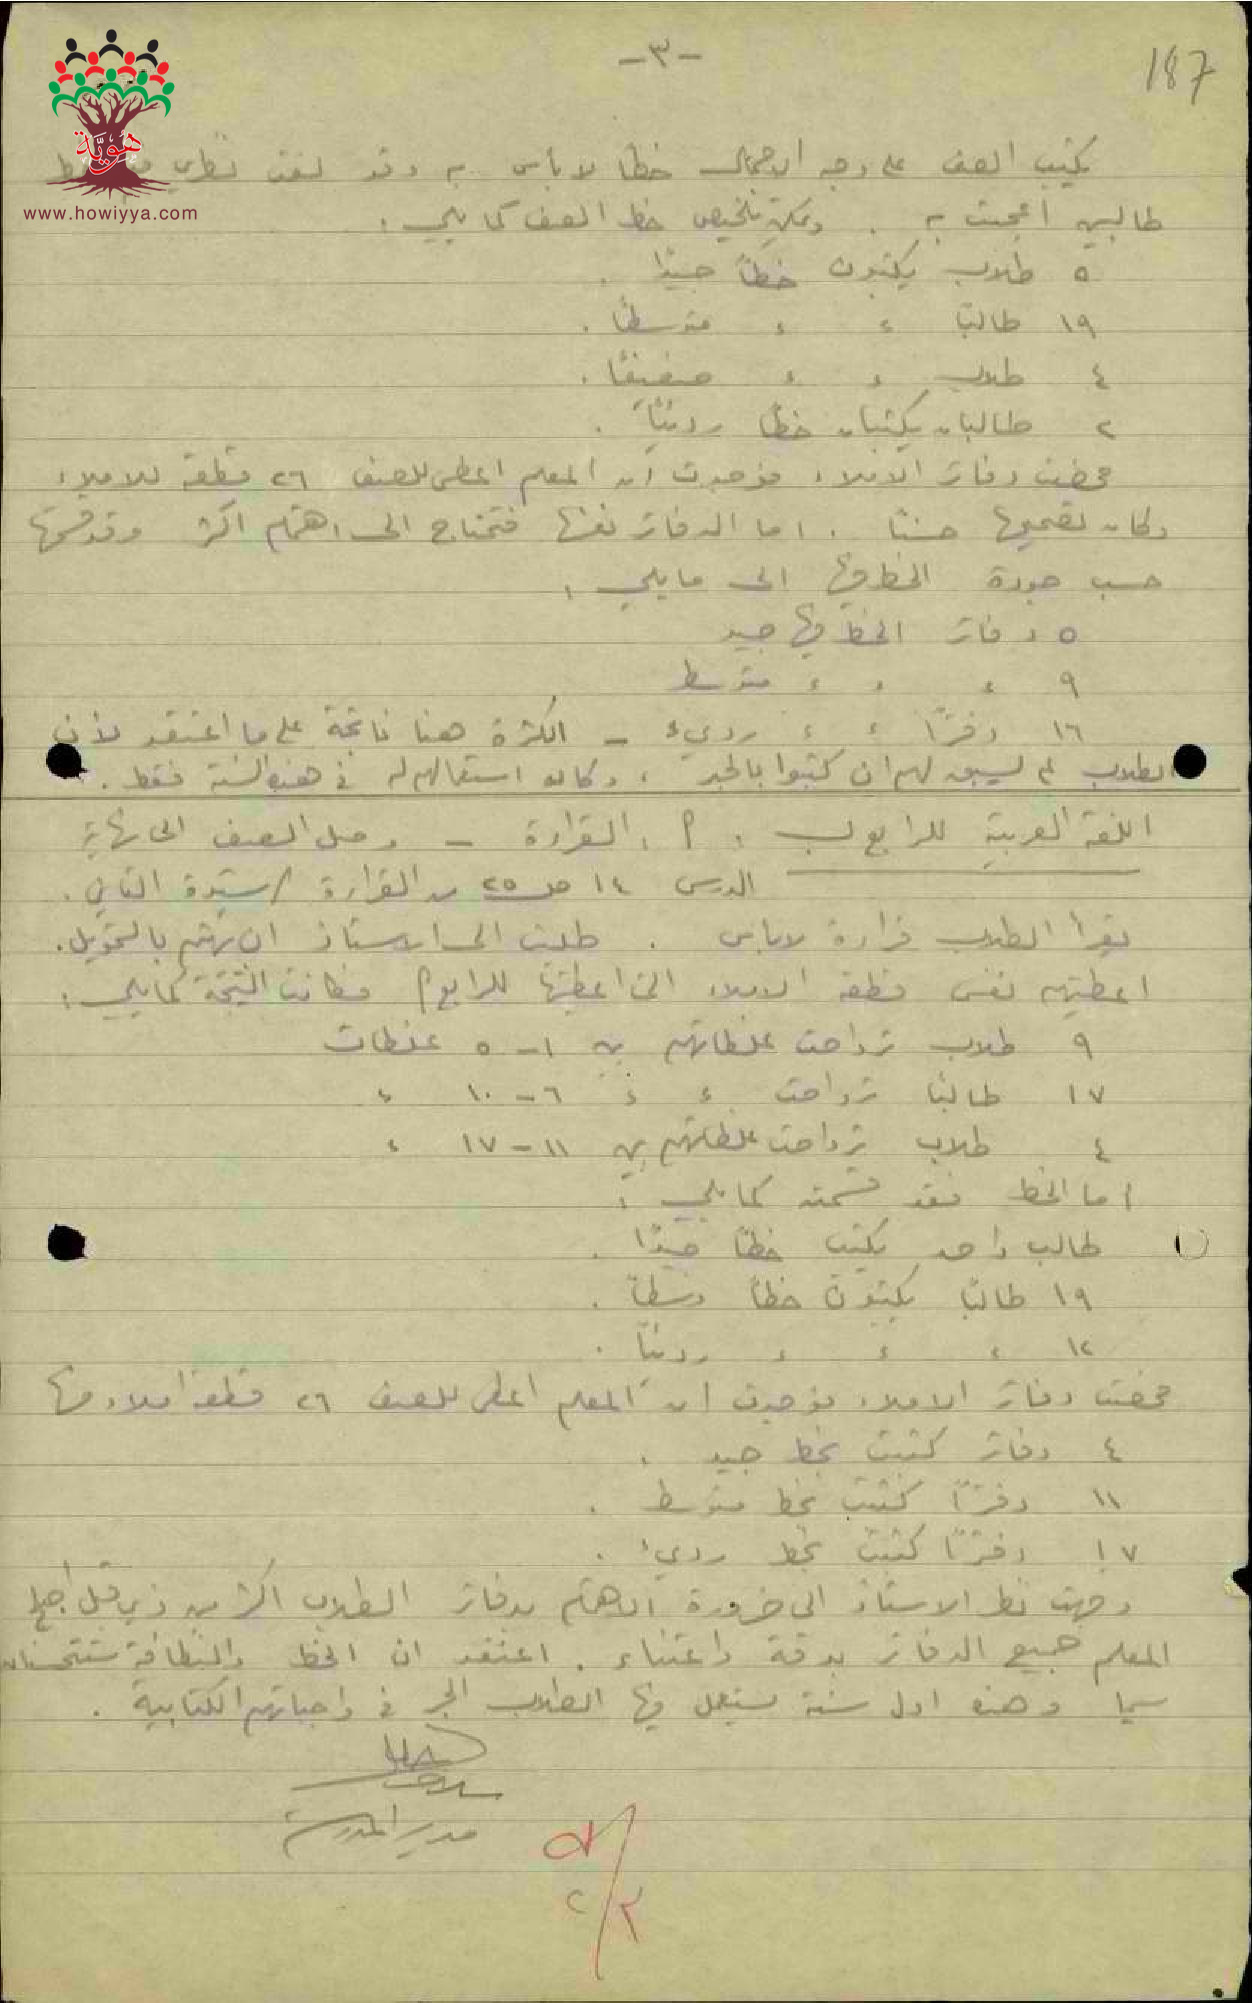 187
-٣-
هوية
www.howiyya.com
يكتب الصف على وجه الاجمال خطا لا بأس به وقد لفت نظري خط
طالبين اعجبت به . ويمكن تلخيص خط الصف كما يلي :
٥ طلاب يكتبون خطاً جيدًا .
١٩ طالبًا ء ء متوسطًا .
٤ طلاب ء ء ضعيفًا .
٢ طالبان يكتبان خطاً رديئاً .
فحصت دفاتر الاملاء فوجدت ان المعلم اعطى للصف ٢٦ قطعة للاملاء
وكان تصحيحها حسنًا . اما الدفاتر نفسها فتحتاج الى اهتمام اكثر وقد قسمتها
حسب جودة الخط فيها الى ما يلي :
٥ دفاتر الخط فيها جيد
٩ ء ء ء متوسط
١٦ دفترًا ء ء رديء - الكثرة هنا ناتجة على ما اعتقد لأن
الطلاب لم يسبق لهم ان كتبوا بالحبر ، وكان استعمالهم له في هذه السنة فقط .
اللغة العربية للرابع ب : أ . القراءة - وصل الصف الى نهاية
الدرس ١٤ ص ٢٥ من القراءة الرشيدة الثاني .
يقرأ الطلاب قراءة لا بأس . طلبت الى الاستاذ ان يهتم بالتحويل .
اعطيتهم نفس قطعة الاملاء التي اعطيتها للرابع أ فكانت النتيجة كما يلي :
٩ طلاب تراوحت غلطاتهم بين ١-٥ غلطات
١٧ طالبًا تراوحت ء ء ٦-١٠ ء
٤ طلاب تراوحت غلطاتهم بين ١١-١٧ ء
اما الخط فقد قسمته كما يلي :
طالب واحد يكتب خطاً جيدًا .
١٩ طالبًا يكتبون خطاً وسطاً .
١٢ ء ء ء رديئاً .
فحصت دفاتر الاملاء فوجدت ان المعلم اعطى للصف ٢٦ قطعة املاء منها
٤ دفاتر كتبت بخط جيد .
١١ دفترًا كتبت بخط متوسط .
١٧ دفترًا كتبت بخط رديء .
وجهت نظر الاستاذ الى ضرورة الاهتمام بدفاتر الطلاب اكثر من ذي قبل
المعلم جميع الدفاتر بدقة واعتناء . اعتقد ان الخط والنظافة ستتحسنان
سيما وهذه اول سنة يستعمل فيها الطلاب الحبر في واجباتهم الكتابية .
مدير المدرسة